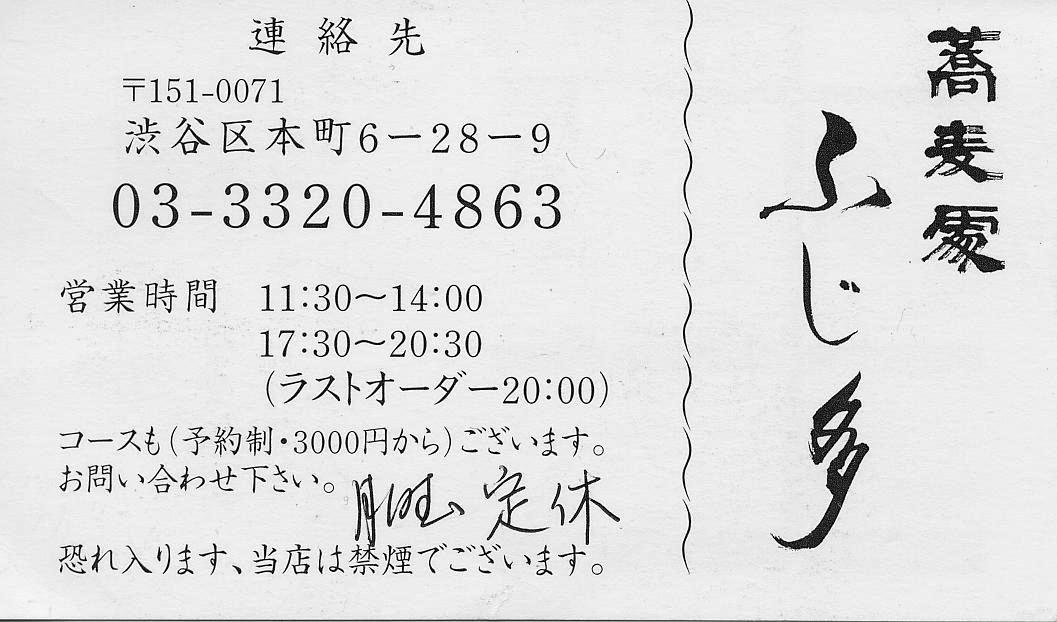 蕎麦家
ふじ多
連絡先
〒151-0071
渋谷区本町6－28－9
03-3320-4863
営業時間 11:30～14:00
17:30～20:30
(ラストオーダー20:00)
コースも(予約制・3000円から)ございます。
お問い合わせ下さい。
定休
恐れ入ります、当店は禁煙でございます。